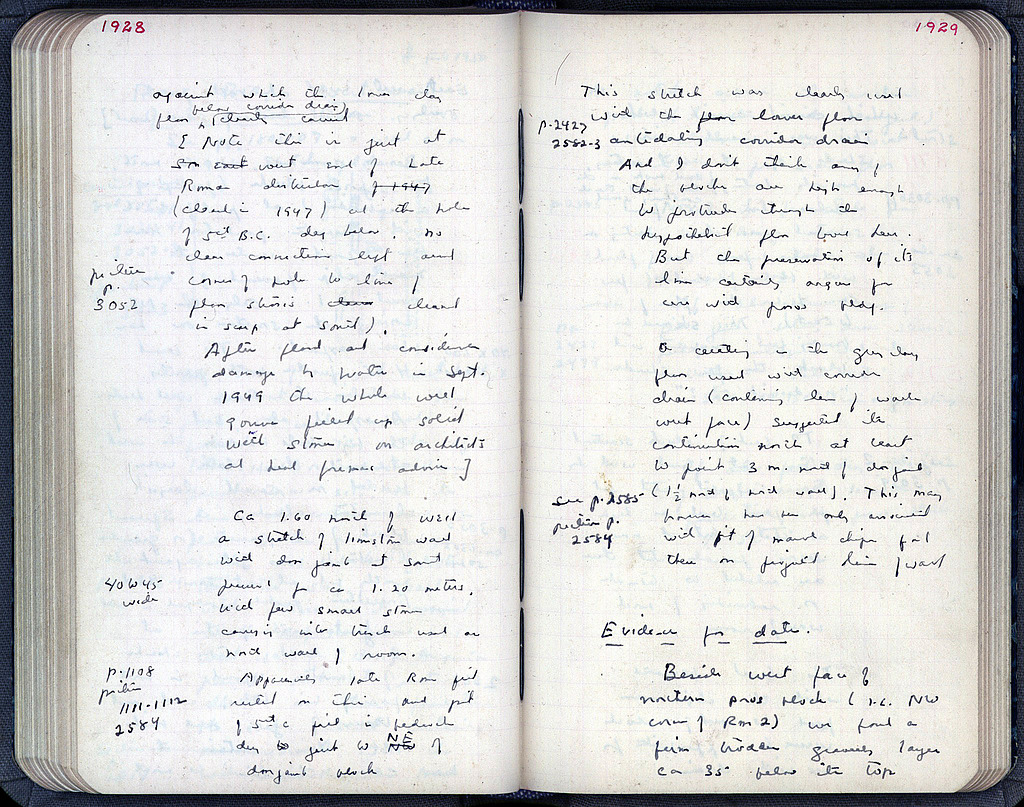 1928
against which the lower clay
below corridor drain
floor clearly
[ Note this is just at
east west end of Late
Roman disturbance of 1947
(cleared in 1947) and the hole
of 5th B.C. deep below. No
clear connections left and
picture
p.
3052
corner of hole to line of
floor stones cleared
in scarp at south).
After flood and considerable
damage by water in Sept.
1949 the whole well
filled up solid
with stones on architect's
advice ]
Ca 1.60 north of well
a stretch of limestone wall
with door jamb at south
preserved for ca 1.20 meters,
40 W 45
wide
with few small stones
into trench
north wall of room.
p. 1108
picture
1111-1112
2584
Apparently late Roman fill
rested on this and pit
of 5th c fill is
deep just to NW NE of
doorjamb block
1929
This stretch was clearly used
with the floor lower floor
p. 2427
2582-3
antedating corridor drain
And I don't think any of
the blocks are high enough
to protrude through the
hypothetical floor here.
But the preservation of its
line certainly argues for
use with poros bldg.
A cutting in the grey clay
floor used with corridor
drain (continuing line of wall
west face) suggested its
continuation north at least
to point 3 m. north of doorjamb
see p. 2585
picture p.
2584
(1½ north of north wall). This may
however have been only associated
with pit of marble chips fill
there on projected line of wall
Evidence for date.
Beside west face of
northern poros block (i.e. NW
corner of Rm 2) we found a
firm trodden gravelly layer
ca 35 below its top